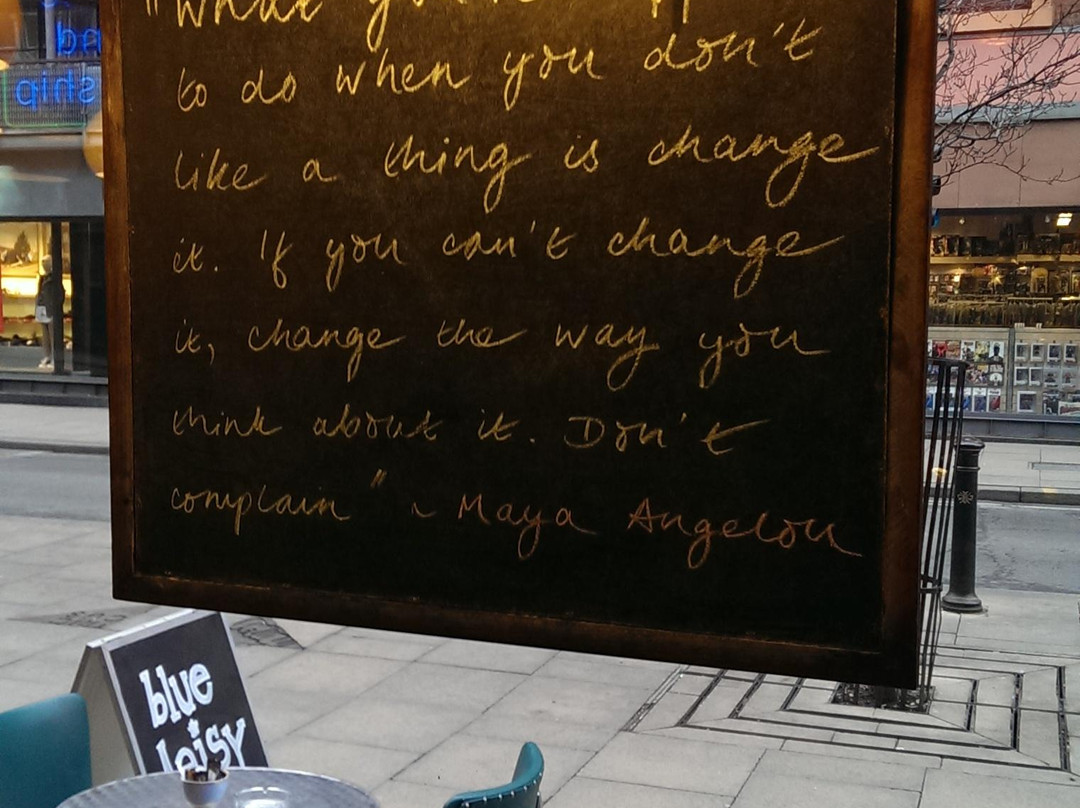 "What you're
to do when you don't
like a thing is change
it. If you can't change
it, change the way you
think about it. Don't
complain" ~ Maya Angelou
blue
daisy
ship